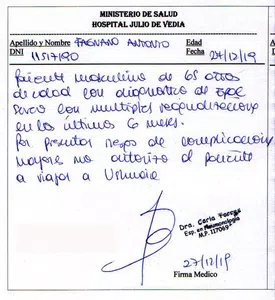 MINISTERIO DE SALUD
HOSPITAL JULIO DE VEDIA
Apellido y Nombre FAGNANO ANTONIO Edad
DNI 11517190 Fecha 27/12/19
Paciente masculino de 65 años
de edad con diagnostico de EPOC
Severo con multiples reagudizaciones
en los últimos 6 meses.
Por presentar riesgo de complicación
mayores no autorizo al paciente
a viajar a Ushuaia
Dra. Carla
Esp. en Neumonología
M.P. 117069
27/12/19
Firma Medico